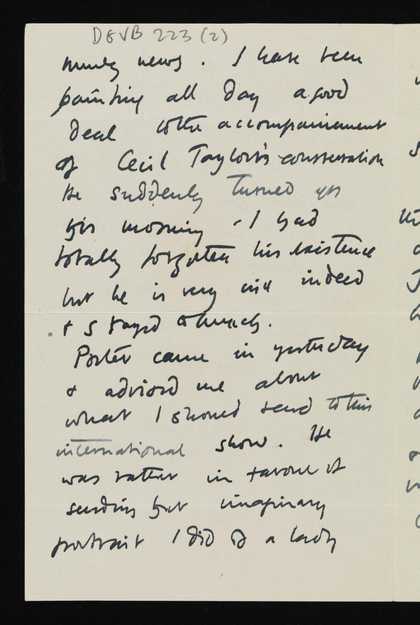 DEVB 223 (2)
news. I have been
painting all day a good
deal to the accompaniement
of Cecil Taylor's conversation
He suddenly turned up
this morning - I had
totally forgotten his existence
but he is very nice indeed
& stayed to lunch.
Porter came in yesterday
& advised me about
what I should send to this
international show. He
was rather in favour of
sending that imaginary
portrait I did of a lady